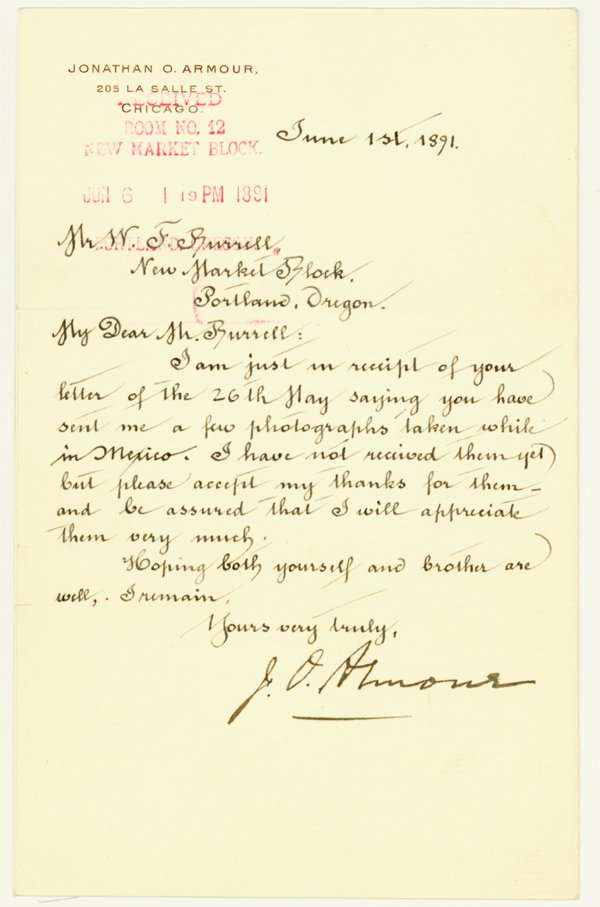 JONATHAN O. ARMOUR,
205 LA SALLE ST.
CHICAGO.
RECEIVED
ROOM NO. 12
NEW MARKET BLOCK.
JUN 6 1 19 PM 1891
June 1st, 1891.
Mr. W. F. Burrell,
New Market Block,
Portland, Oregon.
My Dear Mr. Burrell:
I am just in receipt of your
letter of the 26th May saying you have
sent me a few photographs taken while
in Mexico. I have not received them yet
but please accept my thanks for them—
and be assured that I will appreciate
them very much.
Hoping both yourself and brother are
well, I remain,
Yours very truly,
J. O. Armour